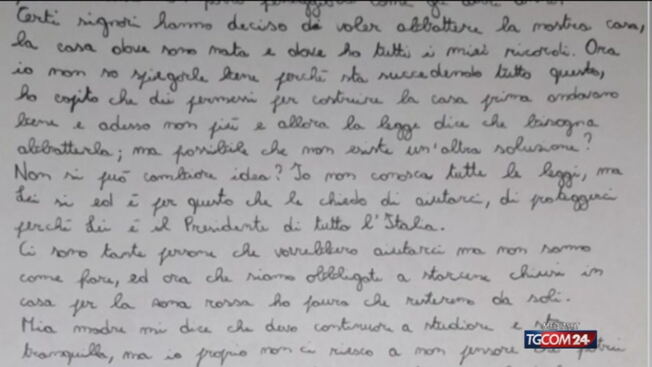 Certi signori hanno deciso di voler abbattere la nostra casa,
la casa dove sono nata e dove ho tutti i miei ricordi. Ora
io non so spiegarle bene perché sta succedendo tutto questo,
ho capito che dei permessi per costruire la casa prima andavano
bene e adesso non più e allora la legge dice che bisogna
abbatterla; ma possibile che non esiste un'altra soluzione?
Non si può cambiare idea? Io non conosco tutte le leggi, ma
Lei si ed è per questo che le chiedo di aiutarci, di proteggerci
perché Lei è il Presidente di tutta l'Italia.
Ci sono tante persone che vorrebbero aiutarci ma non sanno
come fare, ed ora che siamo obbligati a starcene chiusi in
casa per la zona rossa ho paura che resteremo da soli.
Mia madre mi dice che devo continuare a studiare e
tranquilla, ma io proprio non ci riesco a non pensare che potrei
TGCOM24